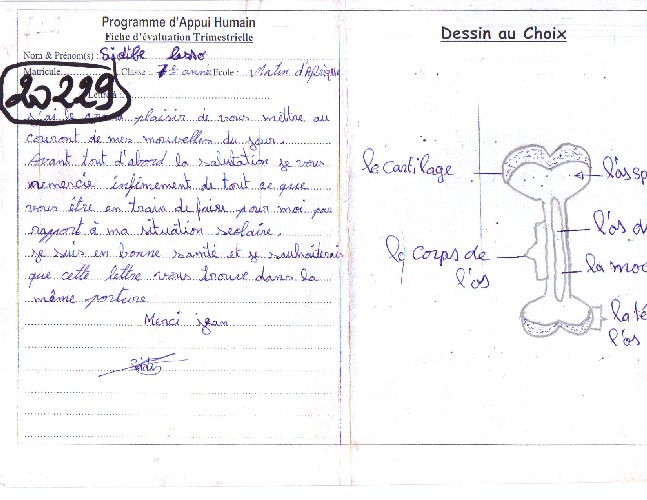 Programme d'Appui Humain
Fiche d'évaluation Trimestrielle
Nom & Prénom(s) : Sidibe Lasso
Matricule Classe : 7è anneé Ecole : Matin d'Afrique
20229
Lettre à :
j'ai le grand plaisir de vous mettre au
couront de mes nouvelles du jour.
Avant tout d'abord la salutation je vous
remercie infiniment de tout ce que
vous être en train de faire pour moi par
rapport à ma situation scolaire.
je suis en bonne santé et je souhaiterais
que cette lettre vous trouve dans la
même porture
Merci jean
Dessin au Choix
le cartilage
l'os sp
l'os d
le corps de
l'os
la mo
la tê
l'os